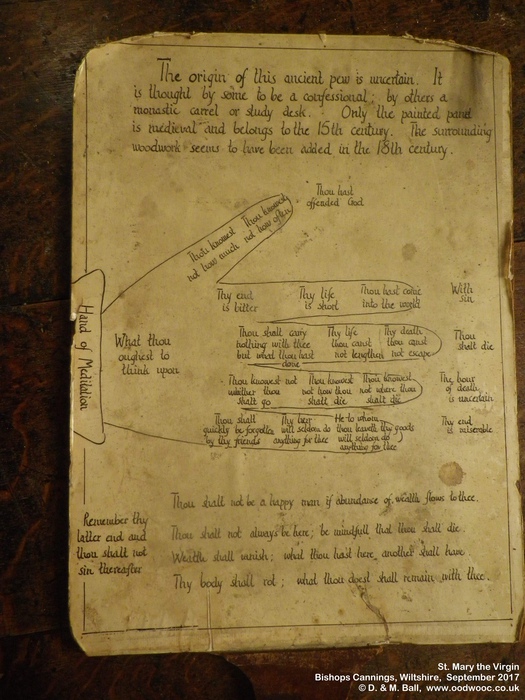 The origin of this ancient pew is uncertain. It
is thought by some to be a confessional; by others a
monastic carrel or study desk. Only the painted panel
is medieval and belongs to the 15th century. The surrounding
woodwork seems to have been added in the 18th century.
Thou hast
offended God
Thou knowest
not how much
Thou knowest
not how often
Hand of Meditation
What thou
oughest to
think upon
Thy end
is bitter
Thy life
is short
Thou hast come
into the world
With
sin
Thou shalt carry
nothing with thee
but what thou hast
done
Thy life
thou canst
not lengthen
Thy death
thou canst
not escape
Thou
shalt die
Thou knowest not
whither thou
shalt go
Thou knowest
not how thou
shalt die
Thou knowest
not where thou
shalt die
The hour
of death
is uncertain
Thou shalt
quickly be forgotten
by thy friends
Thy heir
will seldom do
anything for thee
He to whom
thou leaveth thy goods
will seldom do
anything for thee
Thy end
is miserable
Remember thy
latter end and
thou shalt not
sin thereafter
Thou shall not be a happy man if abundance of wealth flows to thee.
Thou shall not always be here; be mindfull that thou shall die.
Wealth shall vanish; what thou hast here, another shall have.
Thy body shall rot; what thou doest shall remain with thee.
St. Mary the Virgin
Bishops Cannings, Wiltshire, September 2017
© D. & M. Ball, www.oodwooc.co.uk